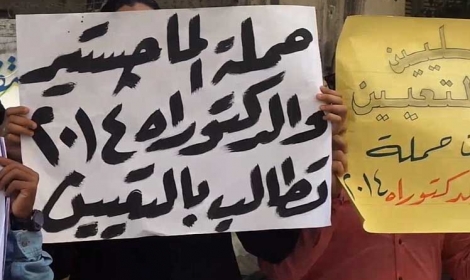 حملة الماچستير
والدكتوراه ٢٠١٤
تطالب بالتعيين
التعيين
حملة
٢٠١٤